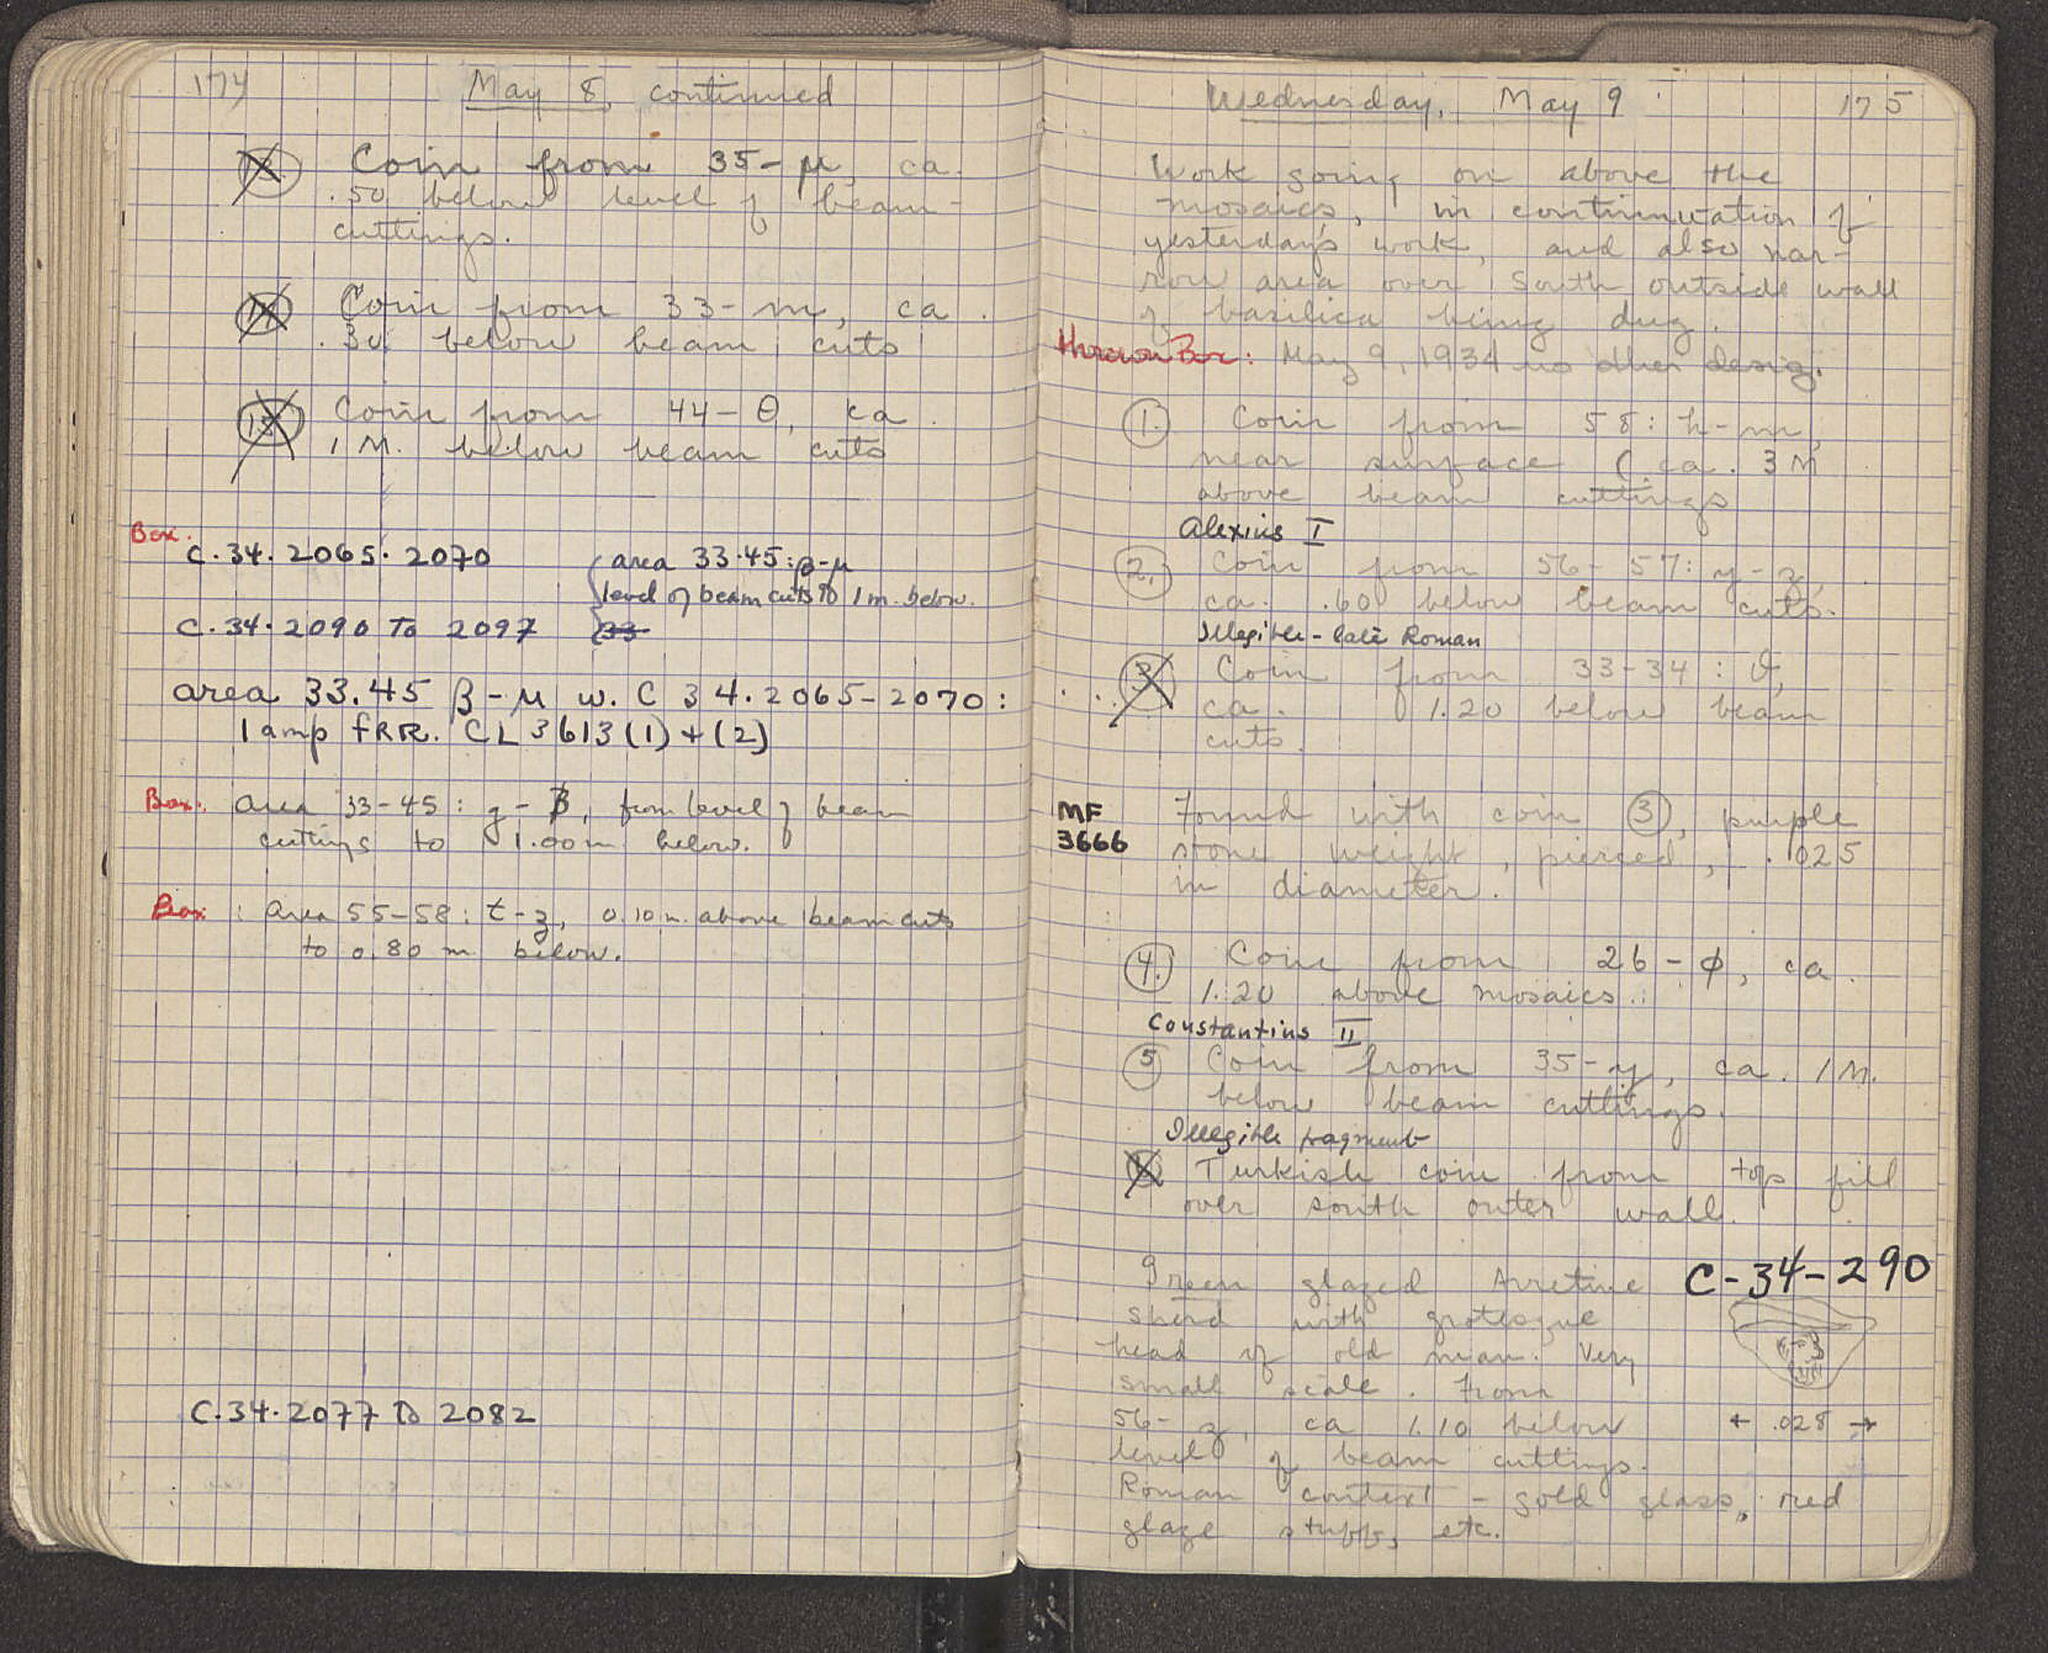 174
May 8, continued
Coin from 35-μ, ca.
.50 below level of beam-
cuttings.
14 Coin from 33-m, ca.
.30 below beam cuts
15 Coin from 44-θ, ca.
1 M. below beam cuts
Box.
C.34.2065.2070
area 33.45:β-μ
level of beam cuts to 1 m. below.
C.34.2090 To 2097
33
area 33.45 β-μ w. C 34.2065-2070:
lamp FRR. CL 3613(1)+(2)
Box: area 33-45: g-β, from level of beam
cuttings to 1.00m below.
Box: area 55-58: t-z, 0.10 m. above beam cuts
to 0.80 m below.
C.34.2077 To 2082
Wednesday, May 9
175
Work going on above the
mosaics, in continuation of
yesterday's work, and also nar-
row area over South outside wall
of basilica being dug.
Box: May 9, 1934 no other desig.
1. Coin from 58: h-m,
near surface (ca. 3 M
above beam cuttings
Alexius I
2. Coin from 56-57: y-z,
ca. .60 below beam cuts.
Illegible - late Roman
3. Coin from 33-34: θ,
ca. 1.20 below beam
cuts.
MF
3666
Found with coin 3, purple
stone weight, pierced, .025
in diameter.
4. Coin from 26-φ, ca.
1.20 above mosaics.
Constantius II
5 Coin from 35-y, ca. 1 M.
below beam cuttings.
Illegible fragment
6 Turkish coin from top fill
over south outer wall.
Green glazed Arretine
C-34-290
sherd with grotesque
head of old man. Very
small scale. From
56-z, ca 1.10 below
← .028 →
level of beam cuttings.
Roman context - gold glass, red
glaze stuff, etc.